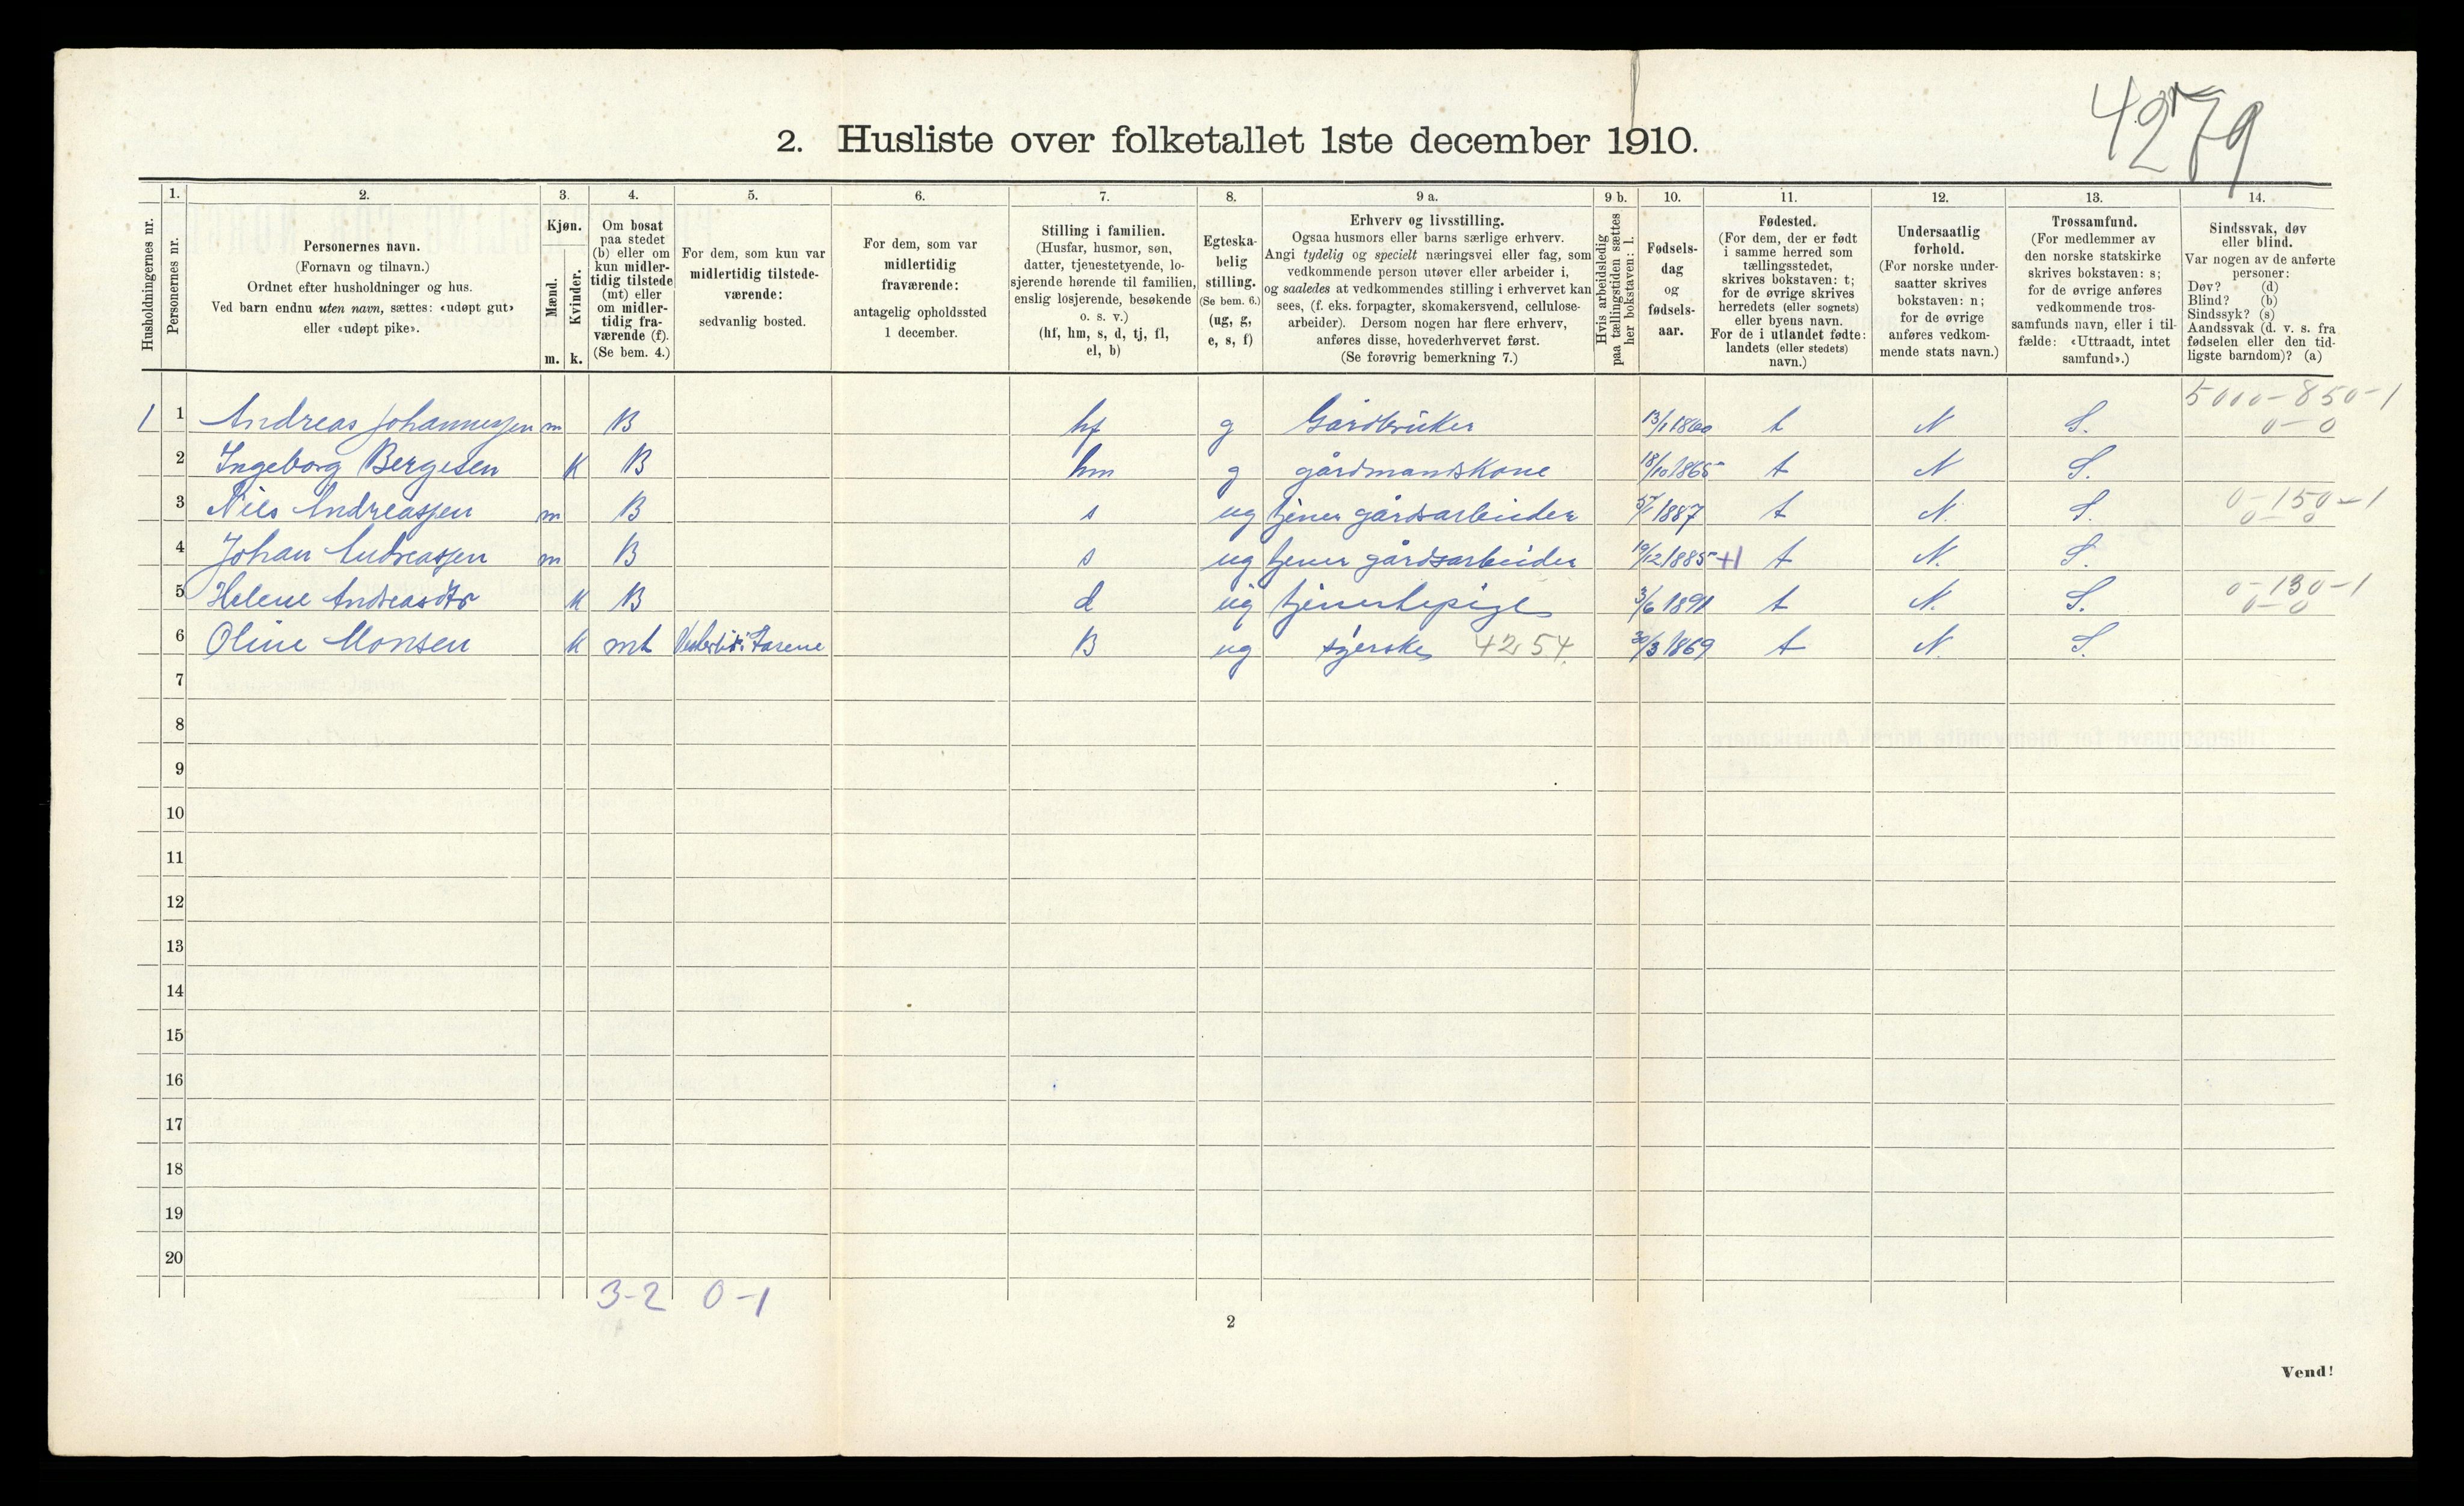 4279
2. Husliste over folketallet 1ste december 1910.
1. 2. 3. 4. 5. 6. 7. 8. 9 a. 9 b. 10. 11. 12. 13. 14.
Husholdningernes nr.
Personernes nr.
Personernes navn.
(Fornavn og tilnavn.)
Ordnet efter husholdninger og hus.
Ved barn endnu uten navn, sættes: «udøpt gut»
eller «udøpt pike».
Kjøn.
Mænd.
Kvinder.
m. k.
Om bosat
paa stedet
(b) eller om
kun midler-
tidig tilstede
(mt) eller
om midler-
tidig fra-
værende (f).
(Se bem. 4.)
For dem, som kun var
midlertidig tilstede-
værende:
sedvanlig bosted.
For dem, som var
midlertidig
fraværende:
antagelig opholdssted
1 december.
Stilling i familien.
(Husfar, husmor, søn,
datter, tjenestetyende, lo-
sjerende hørende til familien,
enslig losjerende, besøkende
o. s. v.)
(hf, hm, s, d, tj, fl,
el, b)
Egteska-
belig
stilling.
(Se bem. 6.)
(ug, g,
e, s, f)
Erhverv og livsstilling.
Ogsaa husmors eller barns særlige erhverv.
Angi tydelig og specielt næringsvei eller fag, som
vedkommende person utøver eller arbeider i,
og saaledes at vedkommendes stilling i erhvervet kan
sees, (f. eks. forpagter, skomakersvend, cellulose-
arbeider). Dersom nogen har flere erhverv,
anføres disse, hovederhvervet først.
(Se forøvrig bemerkning 7.)
Hvis arbeidsledig
paa tællingstiden sættes
her bokstaven: l.
Fødsels-
dag
og
fødsels-
aar.
Fødested.
(For dem, der er født
i samme herred som
tællingsstedet,
skrives bokstaven: t;
for de øvrige skrives
herredets (eller sognets)
eller byens navn.
For de i utlandet fødte:
landets (eller stedets)
navn.)
Undersaatlig
forhold.
(For norske under-
saatter skrives
bokstaven: n;
for de øvrige
anføres vedkom-
mende stats navn.)
Trossamfund.
(For medlemmer av
den norske statskirke
skrives bokstaven: s;
for de øvrige anføres
vedkommende tros-
samfunds navn, eller i til-
fælde: «Uttraadt, intet
samfund».)
Sindssvak, døv
eller blind.
Var nogen av de anførte
personer:
Døv? (d)
Blind? (b)
Sindssyk? (s)
Aandssvak (d. v. s. fra
fødselen eller den tid-
ligste barndom)? (a)
5000-850-1
1 1 Andreas Johannessen m B hf g Gårdbruker 13/1 1860 t N S. 0-0
2 Ingeborg Bergesen K B hm g gårdmandskone 18/10 1865 t N S.
0-150-1
3 Nils Andreassen m B s ug tjener gårdsarbeider 1887 t N. S. 0-0
4 Johan Andreassen m B s ug tjener gårdsarbeider 19/12 1885 +1 t N. S.
0-130-1
5 Helene Andreasdtr K B d ug 3/6 1891 t N. S. 0-0
6 Oline Monsen K mt B ug syerske 4254. 30/3 1869 t N. S.
7
8
9
10
11
12
13
14
15
16
17
18
19
20
3-2 0-1
2
Vend!